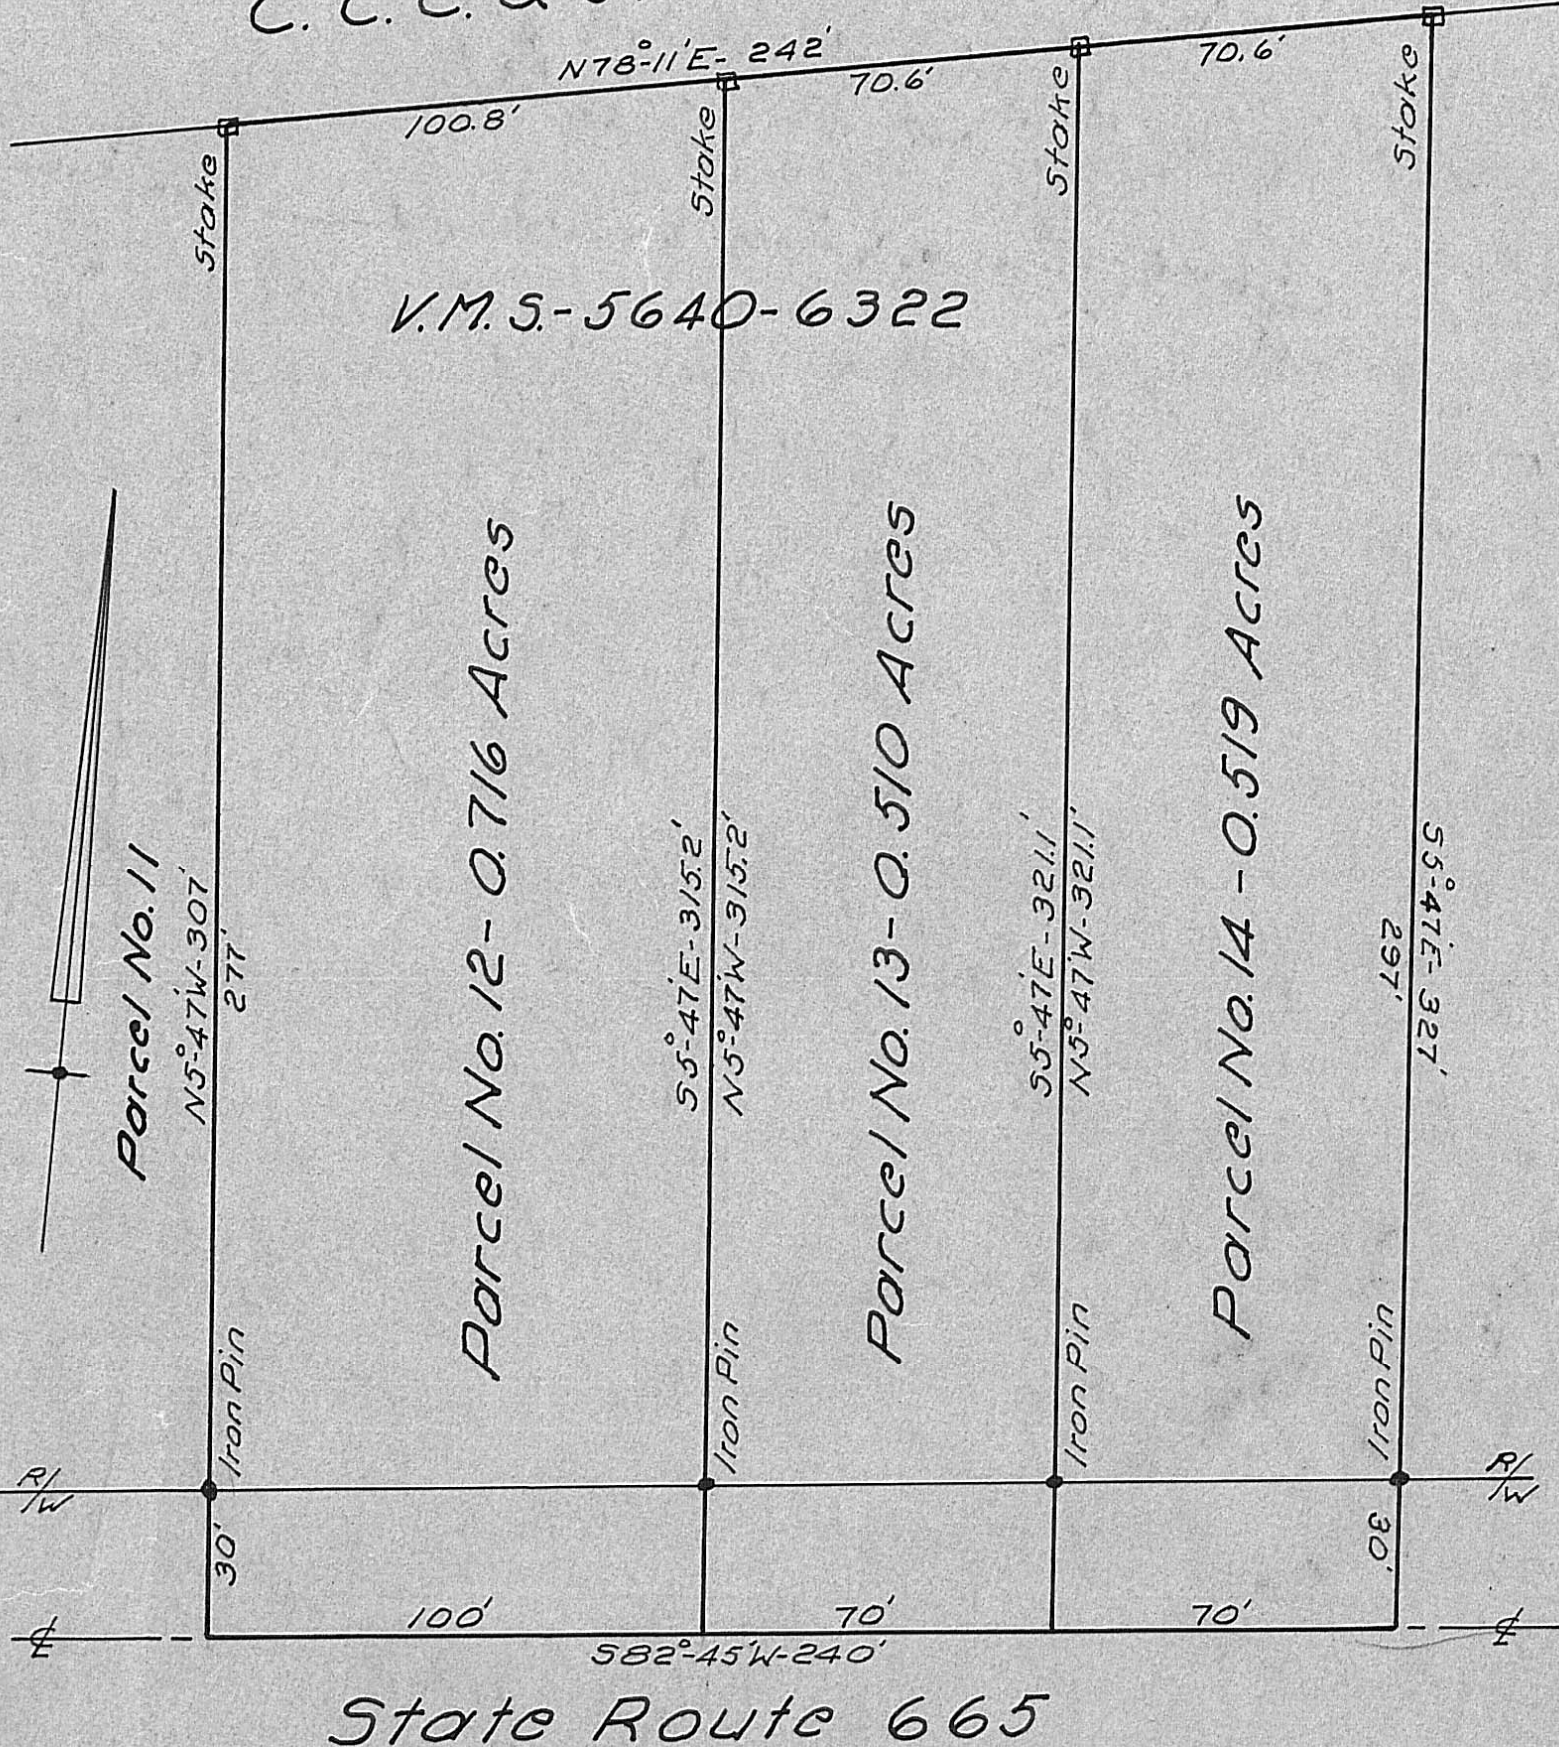 C. C. C. &
N78°-11'E- 242'
100.8'
70.6'
70.6'
Stake
Stake
Stake
Stake
V.M.S.-5640-6322
Parcel No. 11
N5°-47'W-307'
277'
Parcel No. 12- 0.716 Acres
S5°-47'E-315.2'
N5°-47'W-315.2'
Parcel No. 13- 0.510 Acres
S5°-47'E-321.1'
N5°-47'W-321.1'
Parcel No. 14 - 0.519 Acres
S5°-47'E- 327'
297'
Iron Pin
Iron Pin
Iron Pin
Iron Pin
R/W
R/W
30'
30'
℄
100'
70'
70'
℄
S82°-45'W-240'
State Route 665